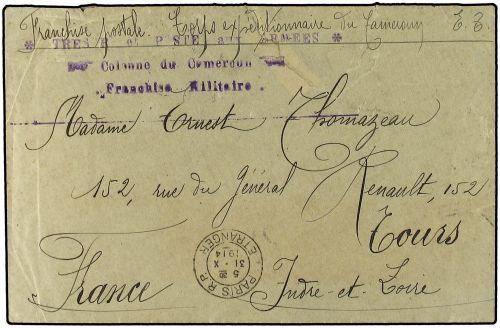 Franchise postale. Corps expéditionnaire du Cameroun T. E.
* TRESOR et POSTE aux ARMEES *
Colonne du Cameroun
Franchise Militaire.
Madame Ernest Thomazeau
152, rue du Général Renault, 152
Tours
France Indre-et-Loire
PARIS R.P. ETRANGER
5
31 - X
1914